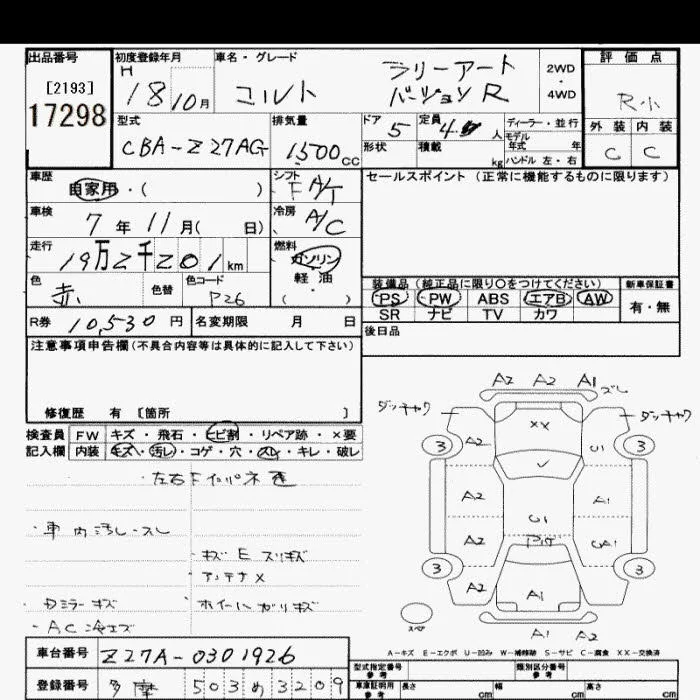 出品番号 初度登録年月 車名・グレード 評価点
[2193] H 18 10月 コルト ラリーアート バージョンR 2WD・4WD R小
17298
型式 排気量 ドア 定員 ディーラー・並行 外装 内装
CBA-Z27AG 1500cc 5 4 人 モデル年式 年 C C
形状 積載 kg ハンドル 左・右
車歴 シフト セールスポイント(正常に機能するものに限ります)
自家用・( ) F A/T
車検 冷房
7年11月( 日) A/C
走行 燃料
19万2千201km ガソリン
軽・油
色 色替 色コード ( )
赤 P26
装備品(純正品に限り○をつけてください) 新車保証書
PS PW ABS エアB AW 有・無
SR ナビ TV カワ
R券 10,530円 名変期限 月 日
後日品
注意事項申告欄(不具合内容等は具体的に記入して下さい)
修復歴 有 [箇所 ]
検査員 FW キズ・飛石・ヒビ割・リペア跡・×要
記入欄 内装 キズ・汚レ・コゲ・穴・スレ・キレ・破レ
左右Fインパネ
・車内汚レスレ
・キズEスリキズ
・アンテナX
・Dミラーキズ ・ホイールガリキズ
・AC冷エズ
A2 A2 A1 ズレ
ダッチャク ダッチャク
XX
3 A2 U1 3
A2 A1
U1
A2 UA1
3 3
A2 A1
スペア A1 A2
A-キズ E-エクボ U-凹み W-補修跡 S-サビ C-腐食 XX-交換済
車台番号 Z27A-0301926
登録番号 多摩 503 め 3209
型式指定番号 参考 類別区分番号 参考
車庫証明用 参考 長さ cm 幅 cm 高さ cm